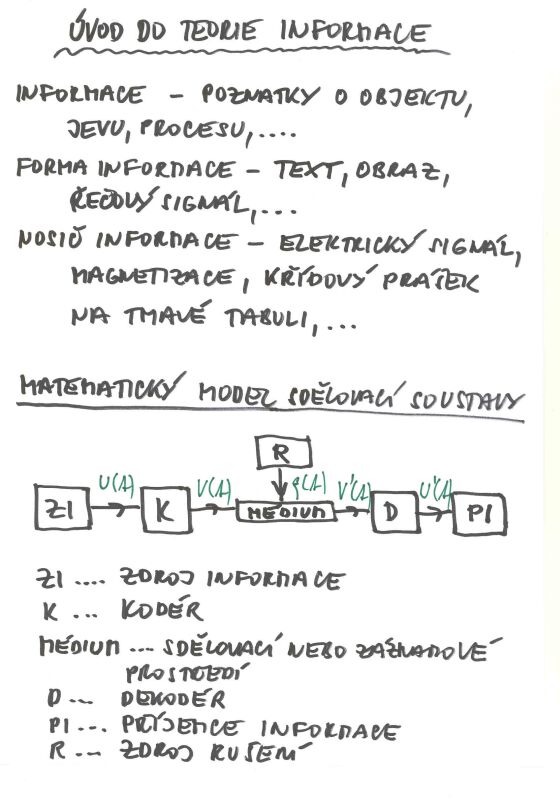 ÚVOD DO TEORIE INFORMACE
INFORMACE – POZNATKY O OBJEKTU,
JEVU, PROCESU,....
FORMA INFORMACE – TEXT, OBRAZ,
ŘEČOVÝ SIGNÁL,...
NOSIČ INFORMACE – ELEKTRICKÝ SIGNÁL,
MAGNETIZACE, KŘÍDOVÝ PRÁŠEK
NA TMAVÉ TABULI,...
MATEMATICKÝ MODEL SDĚLOVACÍ SOUSTAVY
R
U(t) V(t) ρ(t) V'(t) U'(t)
ZI K MÉDIUM D PI
ZI .... ZDROJ INFORMACE
K ... KODÉR
MÉDIUM ... SDĚLOVACÍ NEBO ZÁZNAMOVÉ
PROSTŘEDÍ
D ... DEKODÉR
PI ... PŘÍJEMCE INFORMACE
R ... ZDROJ RUŠENÍ